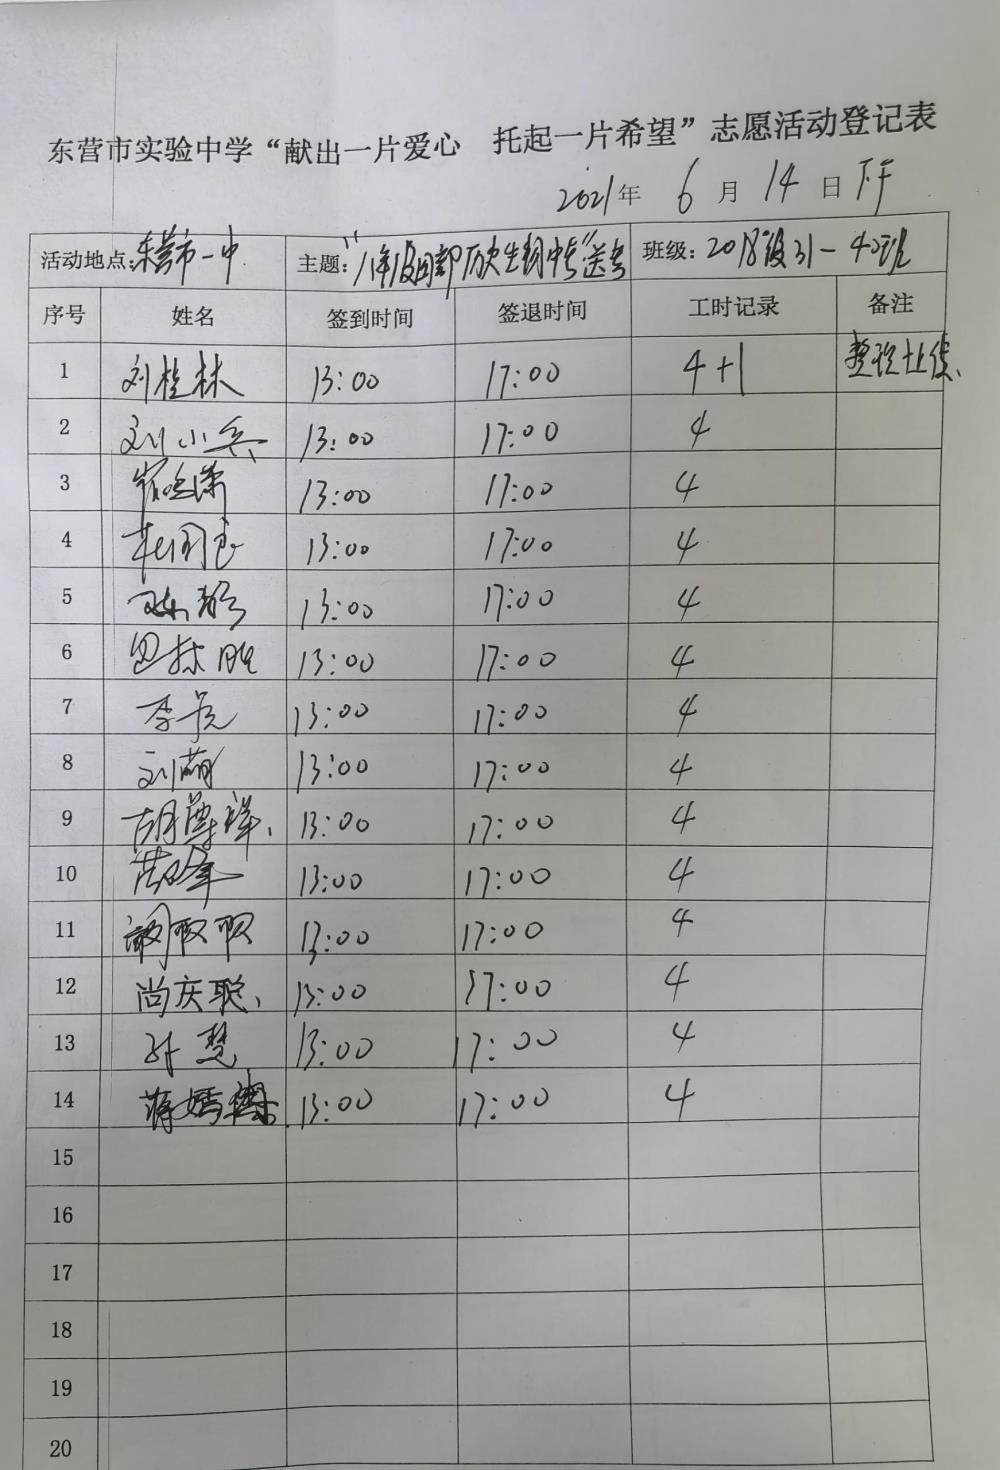 东营市实验中学“献出一片爱心 托起一片希望”志愿活动登记表
2021年 6 月 14 日 下午
活动地点:东营市一中 主题:“八年级 部历史生物中考”送考 班级:2018级31-40班
序号 姓名 签到时间 签退时间 工时记录 备注
1 刘桂林 13:00 17:00 4+1 整理
2 刘小兵 13:00 17:00 4
3 13:00 17:00 4
4 13:00 17:00 4
5 13:00 17:00 4
6 13:00 17:00 4
7 13:00 17:00 4
8 刘萌 13:00 17:00 4
9 胡尊祥 13:00 17:00 4
10 13:00 17:00 4
11 13:00 17:00 4
12 尚庆聪 13:00 17:00 4
13 孙慧 13:00 17:00 4
14 蒋嫣 13:00 17:00 4
15
16
17
18
19
20